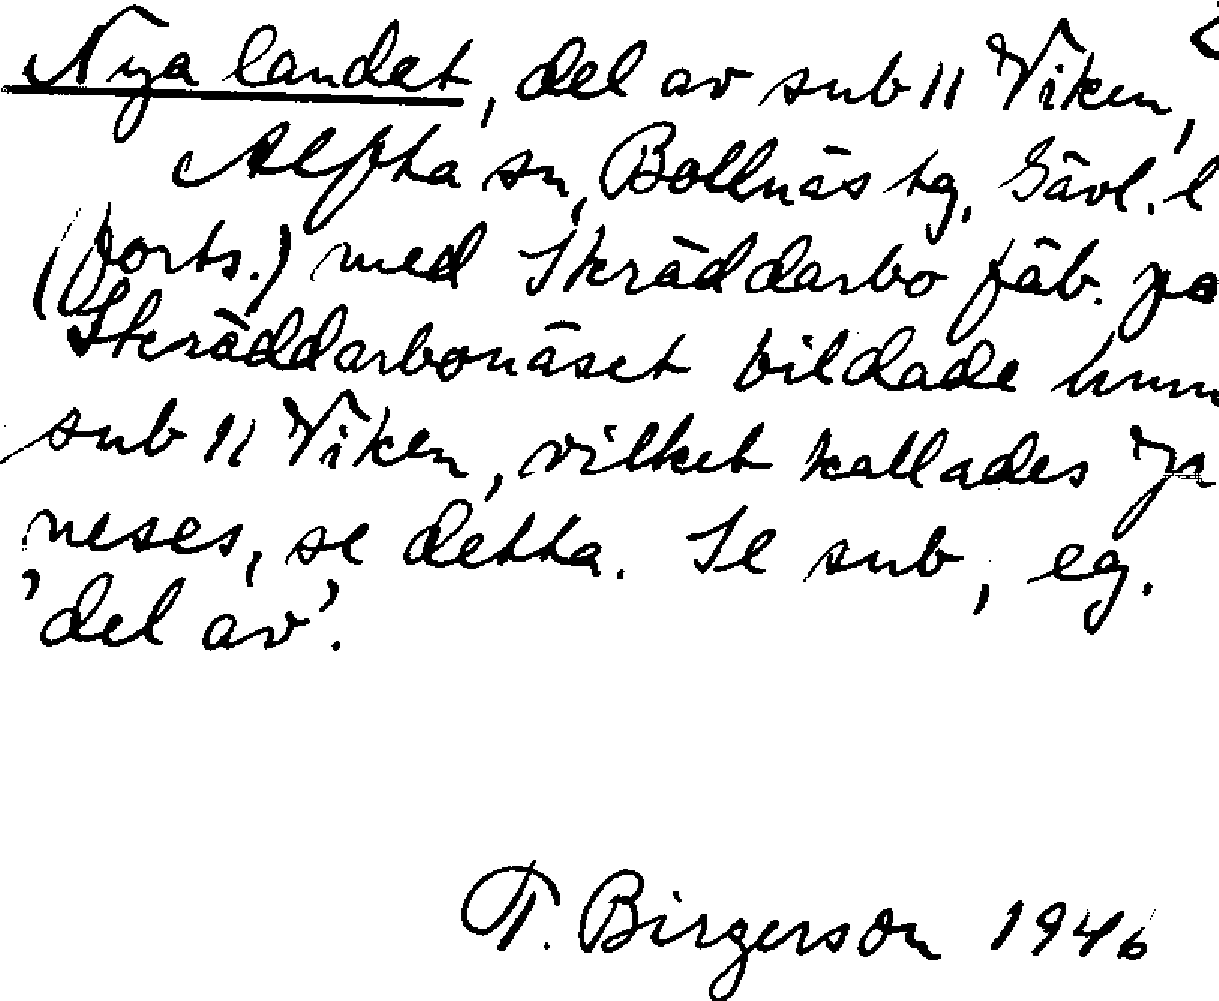 Nya landet, del av sub 11 Viken,
Alfta sn, Bollnäs tg, Gävl. l
(forts.) med Skräddarbo fäb. på
Skräddarbonäset bildade
sub 11 Viken, vilket kallades
neses, se detta. Se sub, eg.
'del av'.
T. Birgerson 1946